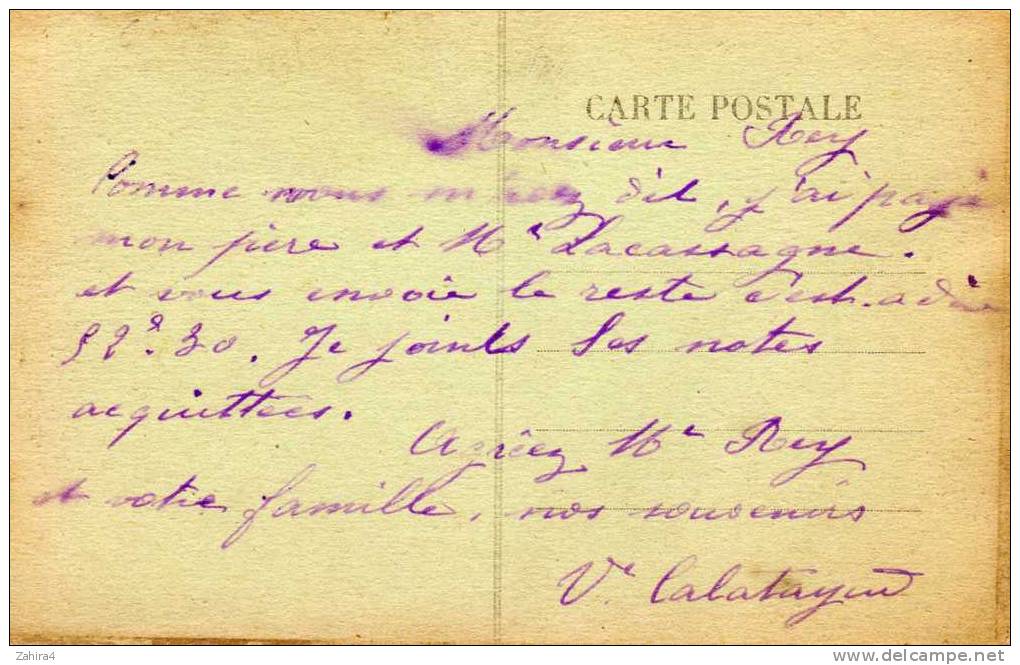 CARTE POSTALE
Monsieur Rey
Comme vous m'avez dit, j'ai payé
mon père et Mr Lacassagne.
et vous envoie le reste c'est-a dire
52f.30. Je joints les notes
acquittées.
Agréez Mr Rey
et votre famille, nos souvenirs
Ve Calatayud
Zahira4
www.delcampe.net